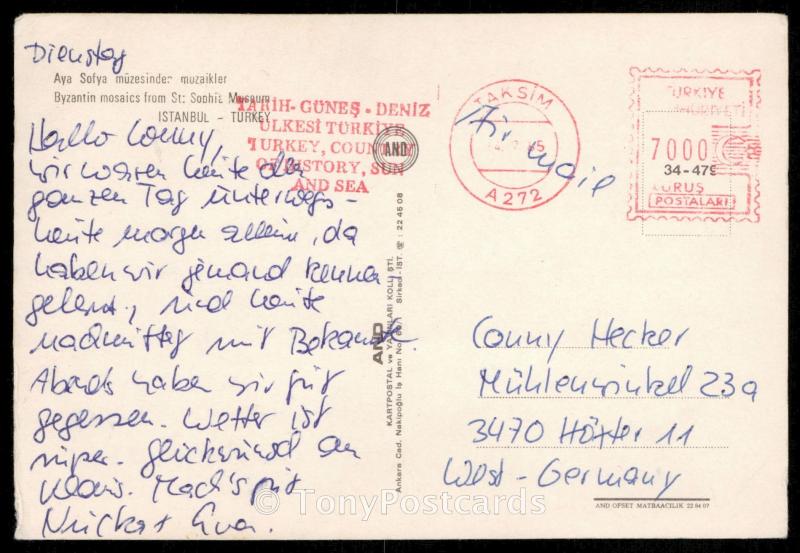 Dienstag
Aya Sofya müzesinden mozaikler
Byzantin mosaics from St: Sophia Museum
ISTANBUL - TURKEY
Hallo Conny,
wir waren heute den
ganzen Tag unterwegs -
heute morgen allein, da
haben wir jemand kennen
gelernt, und heute
nachmittag mit Bekannten.
Abends haben wir gut
gegessen. Wetter ist
super. Glückwünsch an
Klaus. Mach's gut
Eva.
TARİH - GÜNEŞ - DENİZ
ÜLKESİ TÜRKİYE
TURKEY, COUNTRY
OF HISTORY, SUN
AND SEA
AND
TAKSİM
A 272
Air mail
TÜRKİYE
CUMHURİYETİ
7000
34-479
KURUŞ
POSTALARI
AND
KARTPOSTAL ve YAYINLARI KOLL. ŞTİ.
Ankara Cad. Nakipoğlu İş Hanı No: Sirkeci - İST. ☎ : 22 45 08
Conny Hecker
Mühlenwinkel 23a
3470 Höxter 11
West-Germany
AND OFSET MATBAACILIK 22 84 07
© TonyPostcards